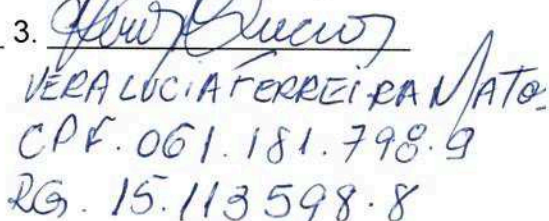 3.
VERA LUCIA FERREIRA MATOS
CPF. 061.181.798.9
RG. 15.113598.8